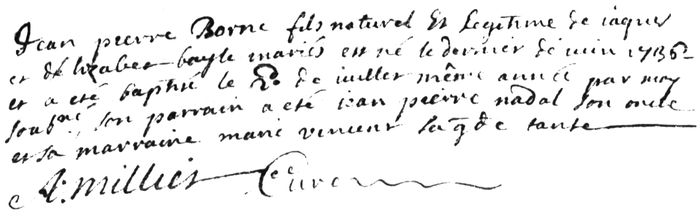 Jean pierre Borne fils naturel Et Legitime de iaques
et de lizabet bayle mariés est né le dernier de iuin 1736
et a eté baptisé le 2e de iuillet même année par moy
soubné son parrain a eté iean pierre nadal son oncle
et sa marraine marie vincent sa tante
Millier Curé